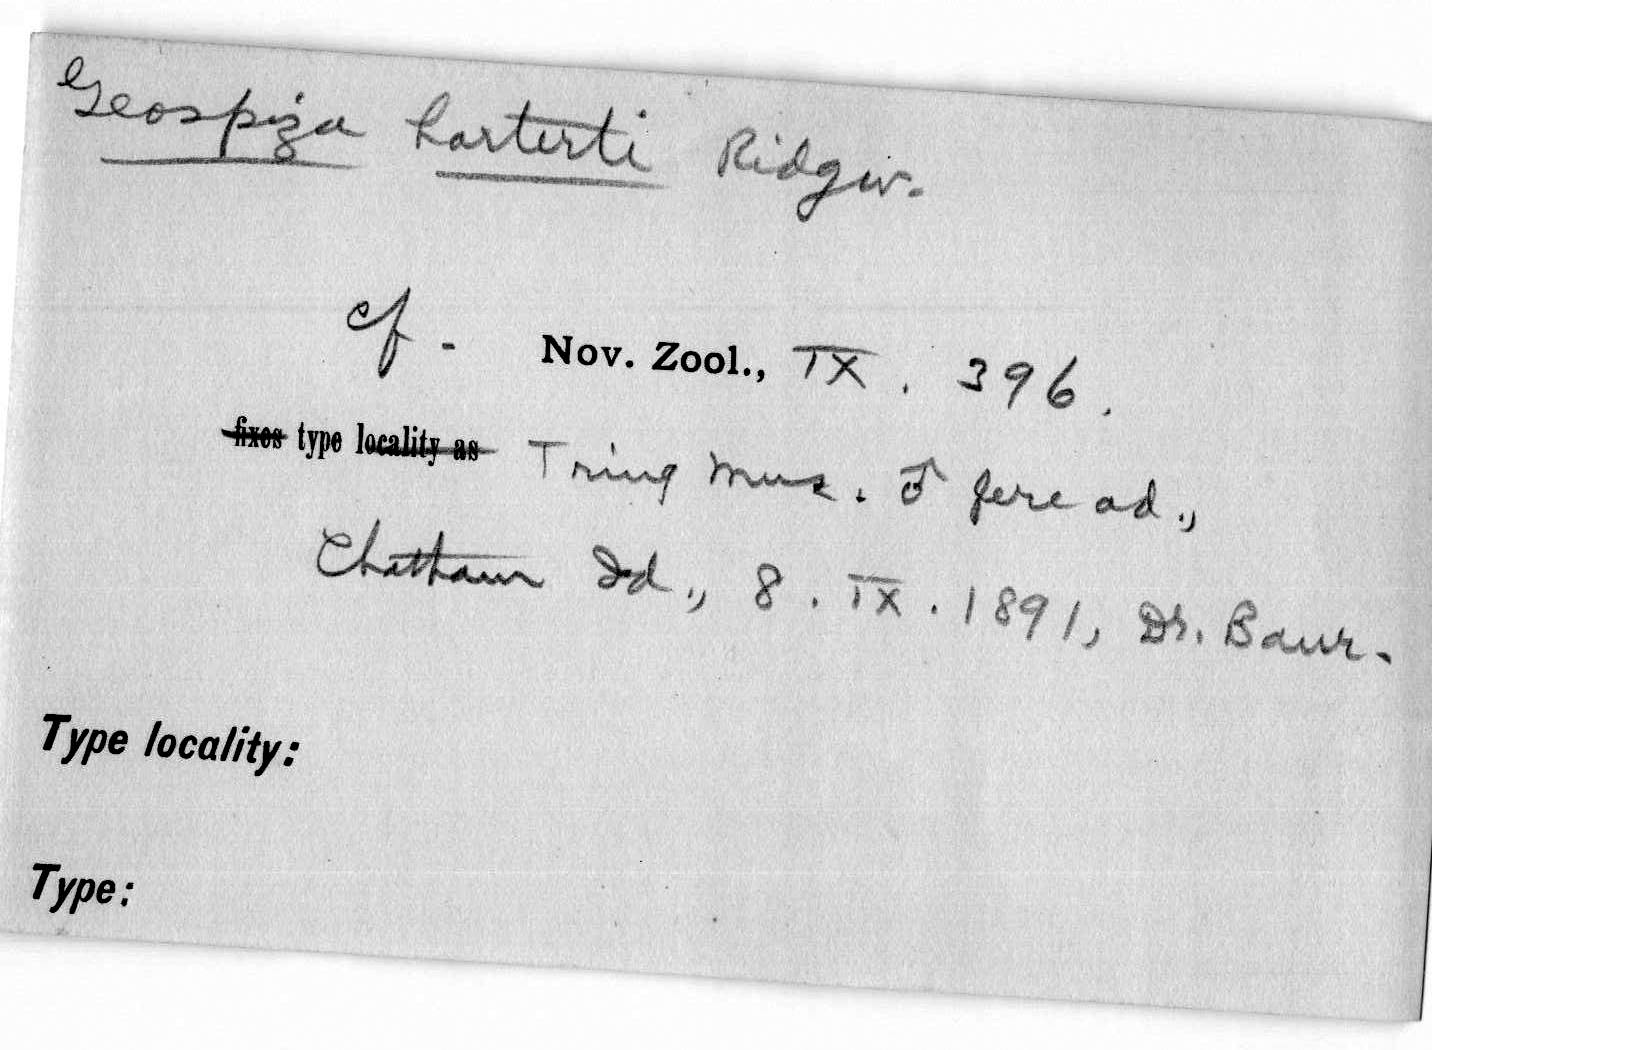 Geospiza harterti Ridgw.
cf. Nov. Zool., IX. 396.
fixes type locality as Tring Mus. ♂ fere ad.,
Chatham Id., 8. IX. 1891, Dr. Baur.
Type locality:
Type: